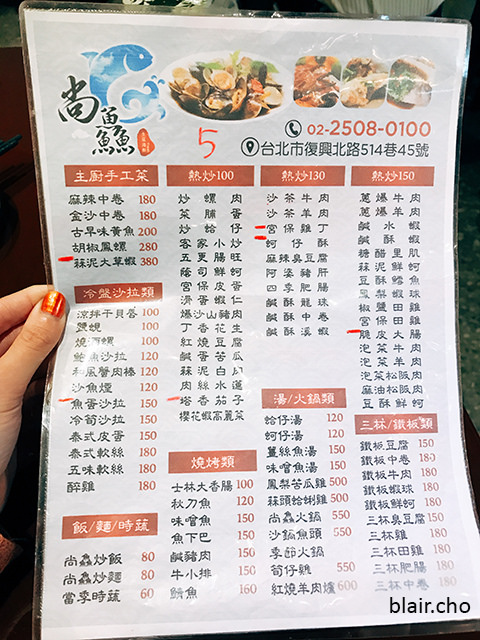 尚鱻
02-2508-0100
台北市復興北路514巷45號
5
主廚手工菜
麻辣中卷 180
金沙中卷 180
古早味黃魚 200
胡椒鳳螺 280
蒜泥大草蝦 380
冷盤沙拉類
涼拌干貝唇 100
鹽蜆 100
燒酒螺 100
鮑魚沙拉 120
和風蟹肉棒 120
沙魚煙 120
魚蛋沙拉 150
冷筍沙拉 150
泰式皮蛋 150
泰式軟絲 180
五味軟絲 180
醉雞 180
飯/麵/時蔬
尚鱻炒飯 80
尚鱻炒麵 80
當季時蔬 60
熱炒100
炒螺肉
菜脯蛋
炒蛤仔
客家小炒
五更腸旺
蔭豉鮮蚵
宮保皮蛋
滑蛋蝦仁
爆沙山豬肉
丁香花生
紅燒豆腐
鹹蛋苦瓜
蒜泥白肉
肉絲水蓮
塔香茄子
櫻花蝦高麗菜
燒烤類
士林大香腸 100
秋刀魚 120
味噌魚 150
魚下巴 150
鹹豬肉 150
牛小排 150
鯖魚 160
熱炒130
沙茶牛肉
沙茶羊肉
宮保雞丁
蚵仔酥
麻辣臭豆腐
阿婆豬肝
四季肥腸
鹹酥龍珠
鹹酥中卷
鹹酥溪蝦
湯/火鍋類
蛤仔湯 120
蚵仔湯 120
薑絲魚湯 150
味噌魚湯 150
鳳梨苦瓜雞 500
蒜頭蛤蜊雞 500
尚鱻火鍋 550
沙鍋魚頭 550
季節火鍋
筍仔雞 550
紅燒羊肉爐 600
熱炒150
蔥爆牛肉
蔥爆羊肉
鹹水蝦
鹹酥蝦
糖醋里肌
蒜泥鮮蚵
豆酥鱈魚
鳳梨蝦球
椒鹽田雞
宮保田雞
脆皮大腸
泡菜牛肉
泡菜羊肉
泡菜松阪肉
麻油松阪肉
豆酥鮮蚵
三杯/鐵板類
鐵板豆腐 150
鐵板中卷 180
鐵板牛肉 180
鐵板蝦球 180
鐵板鮮蚵 180
三杯臭豆腐 150
三杯雞 180
三杯田雞 180
三杯肥腸 180
三杯中卷 180
blair.cho